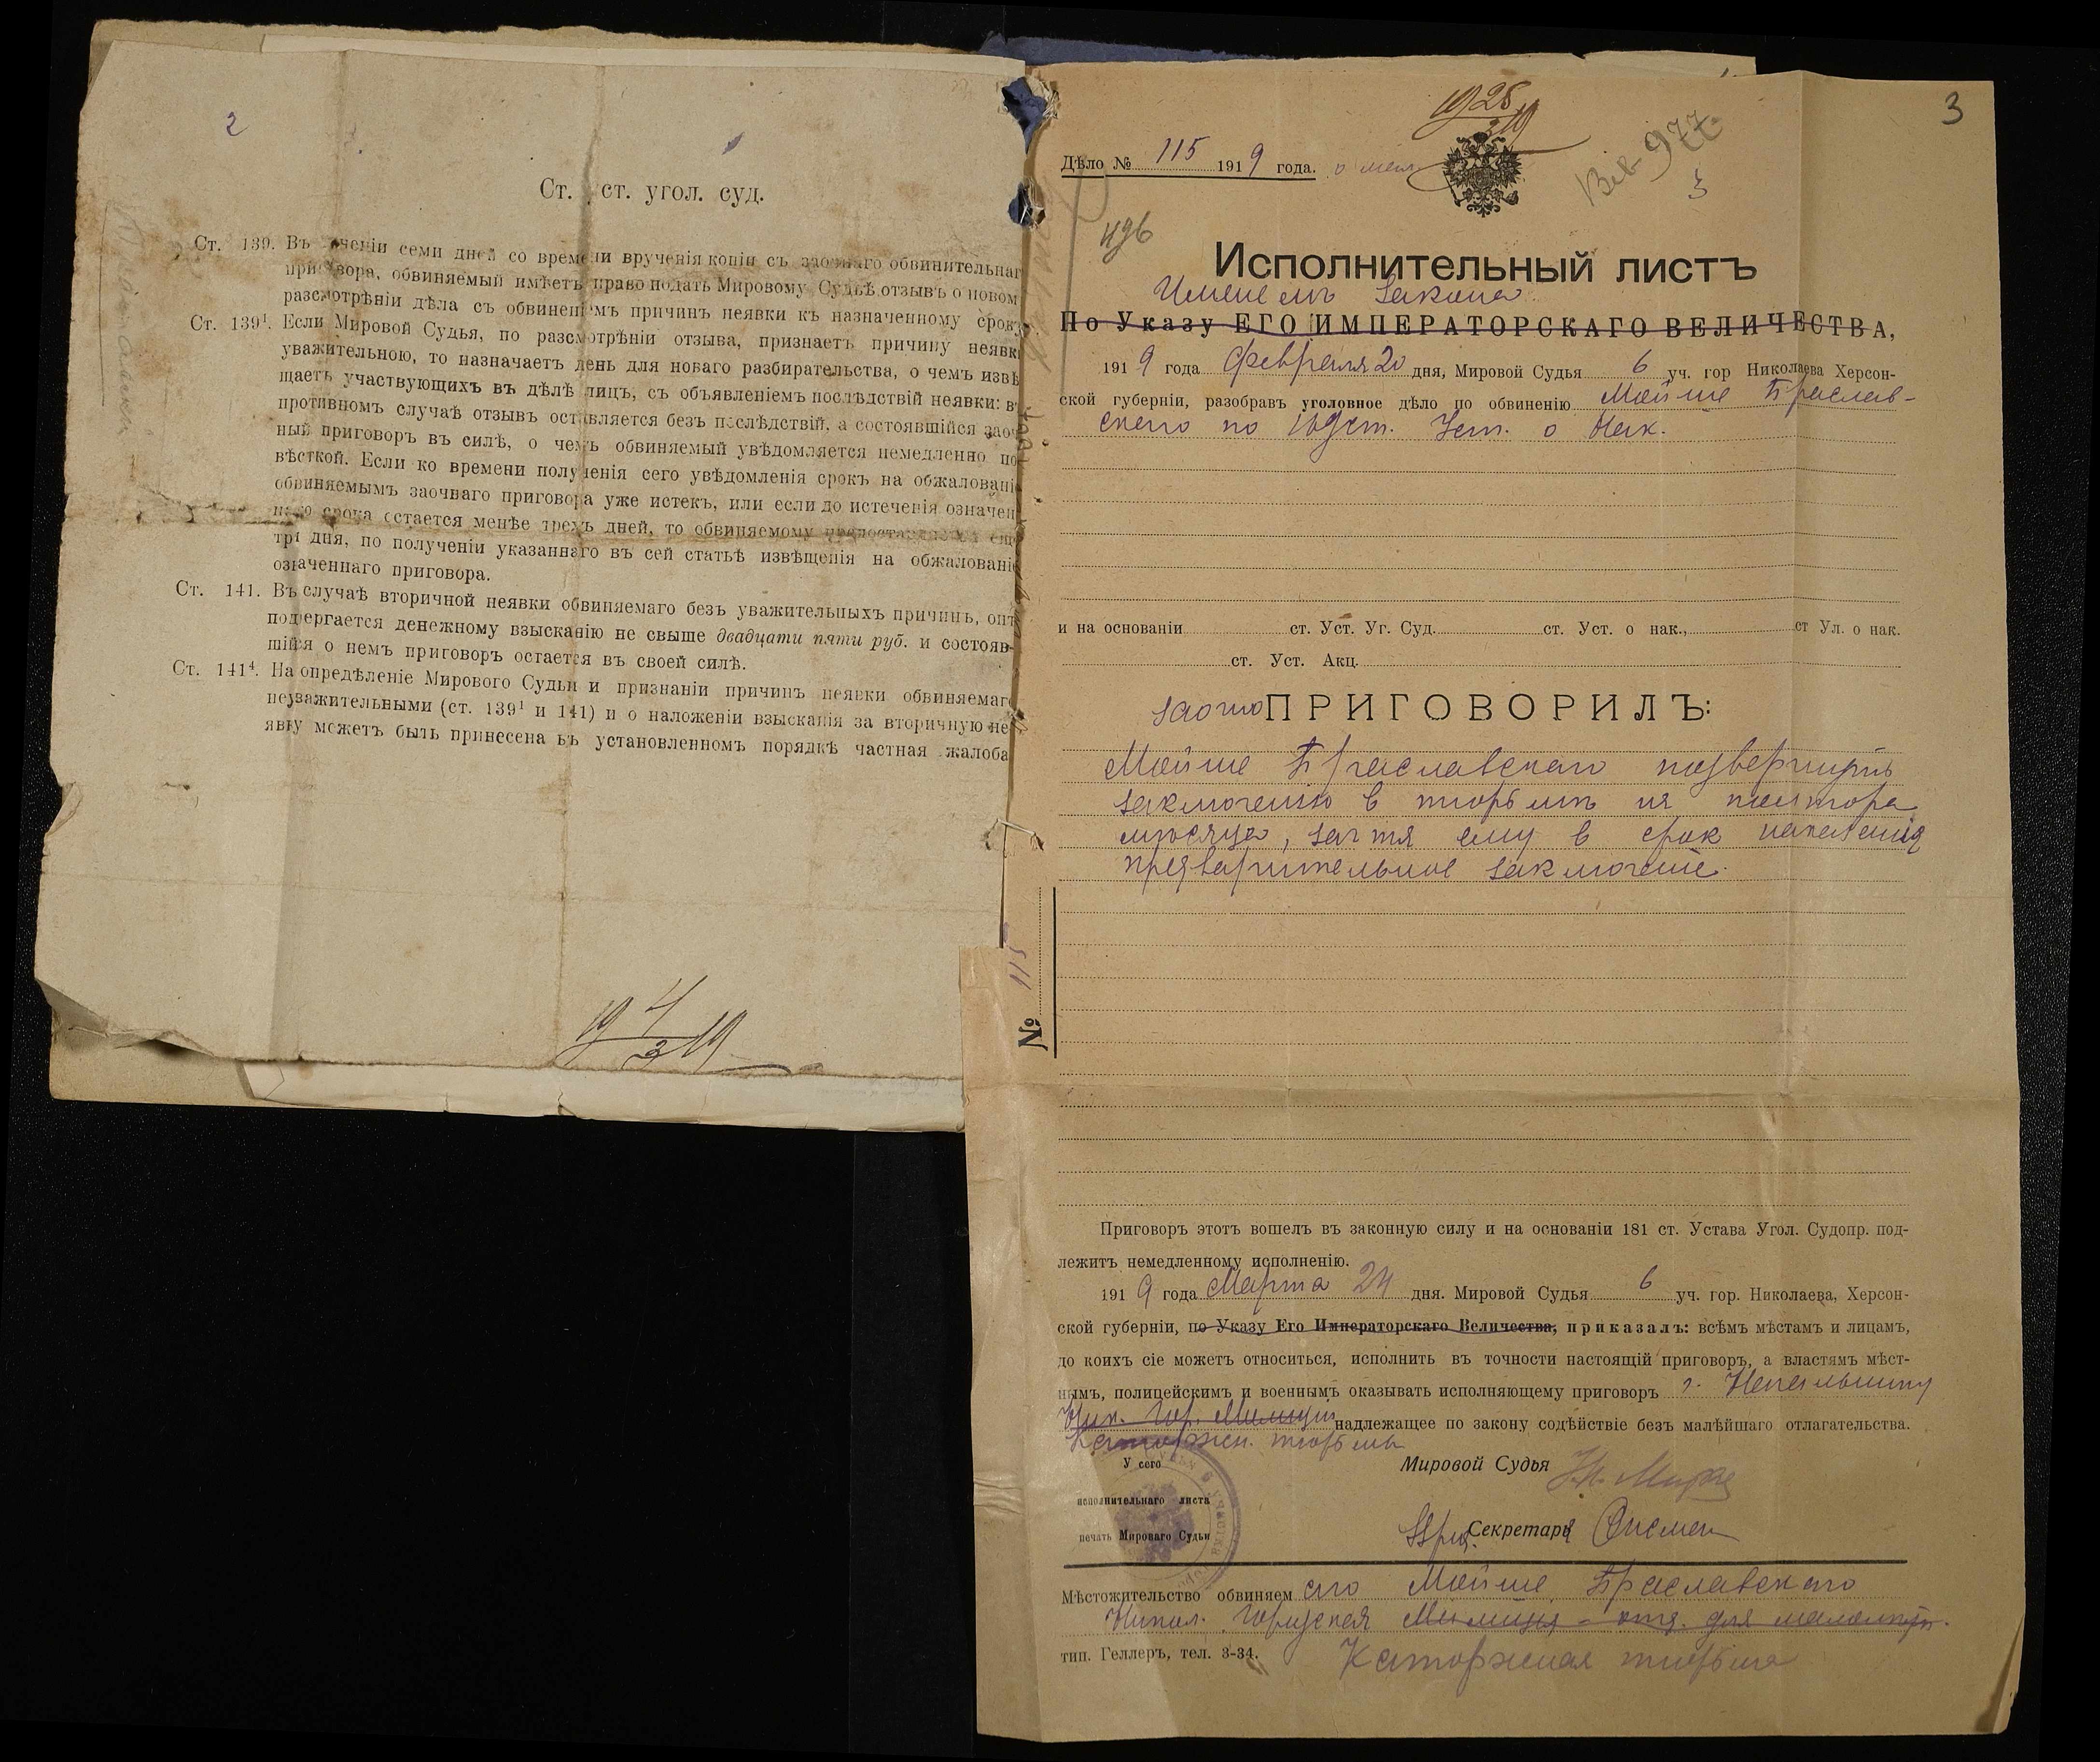 2
Ст. уст. угол. суд.
Ст. 139. Въ теченіи семи дней со времени врученія копіи съ заочнаго обвинительнаг
приговора, обвиняемый имѣетъ право подать Мировому Судьѣ отзывъ о новом
разсмотрѣніи дѣла съ обвиненіемъ причинъ неявки къ назначенному срок
Ст. 139¹. Если Мировой Судья, по разсмотрѣніи отзыва, признаетъ причину неявк
уважительною, то назначаетъ день для новаго разбирательства, о чемъ извѣ
щаетъ участвующихъ въ дѣлѣ лицъ, съ объявленіемъ послѣдствій неявки: в
противномъ случаѣ отзывъ оставляется безъ послѣдствій, а состоявшійся заоч
ный приговоръ въ силѣ, о чемъ обвиняемый увѣдомляется немедленно по
вѣсткой. Если ко времени полученія сего увѣдомленія срокъ на обжалованіе
обвиняемымъ заочнаго приговора уже истекъ, или если до истеченія означен
наго срока остается менѣе трехъ дней, то обвиняемому предоставляется еще
три дня, по полученіи указаннаго въ сей статьѣ извѣщенія на обжалованіе
означеннаго приговора.
Ст. 141. Въ случаѣ вторичной неявки обвиняемаго безъ уважительныхъ причинъ, онъ
подвергается денежному взысканію не свыше двадцати пяти руб. и состояв-
шійся о немъ приговоръ остается въ своей силѣ.
Ст. 141⁴. На опредѣленіе Мирового Судьи и признаніи причинъ неявки обвиняемаго
неуважительными (ст. 139¹ и 141) и о наложеніи взысканія за вторичную не
явку можетъ быть принесена въ установленномъ порядкѣ частная жалоба
19 4/3 19
3
19 25/3 19
Дѣло № 115 1919 года.
977
3
496
Исполнительный листъ
Именемъ Закона
По Указу ЕГО ИМПЕРАТОРСКАГО ВЕЛИЧЕСТВА,
1919 года Февраля 20 дня, Мировой Судья 6 уч. гор Николаева Херсон-
ской губерніи, разобравъ уголовное дѣло по обвиненію Мойше Браслав-
скаго по 169 ст. Уст. о Нак.
и на основаніи ст. Уст. Уг. Суд. ст. Уст. о нак., ст Ул. о нак.
ст. Уст. Акц.
заочно ПРИГОВОРИЛЪ:
Мойше Браславскаго подвергнуть
заключенію в тюрьмѣ на полтора
мѣсяца, зачтя ему в срок наказанія
предварительное заключеніе.
№ 115
Приговоръ этотъ вошелъ въ законную силу и на основаніи 181 ст. Устава Угол. Судопр. под-
лежитъ немедленному исполненію.
1919 года Марта 24 дня. Мировой Судья 6 уч. гор. Николаева, Херсон-
ской губерніи, по Указу Его Императорскаго Величества, приказалъ: всѣмъ мѣстамъ и лицамъ,
до коихъ сіе можетъ относиться, исполнить въ точности настоящій приговоръ, а властямъ мѣст-
нымъ, полицейскимъ и военнымъ оказывать исполняющему приговоръ г. Начальнику
Ник. Гор. Милиціи надлежащее по закону содѣйствіе безъ малѣйшаго отлагательства.
Каторжн. тюрьмы
У сего
исполнительнаго листа
печать Мироваго Судьи
Мировой Судья
Секретаря
Мѣстожительство обвиняемаго Мойше Браславскаго
Никол. Городская Милиція - отд. для малолѣтн.
тип. Геллеръ, тел. 3-34. Каторжная тюрьма